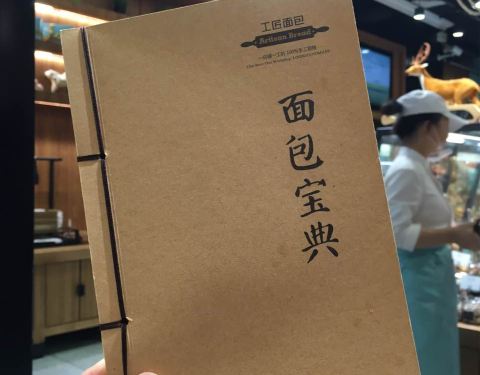 工匠面包
Artisan Bread
面包宝典